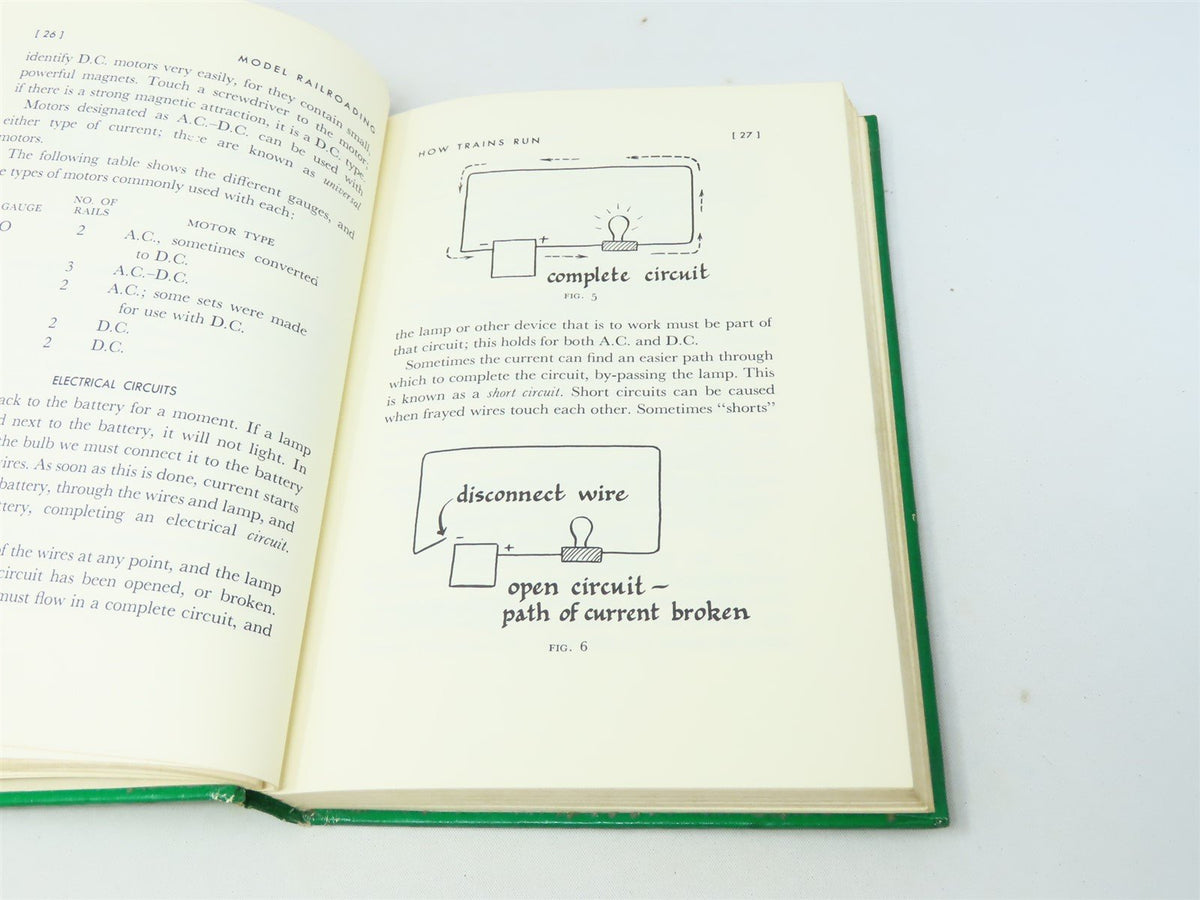 [ 26 ]
MODEL RAILROADING
identify D.C. motors very easily, for they contain small,
powerful magnets. Touch a screwdriver to the motor;
if there is a strong magnetic attraction, it is a D.C. type.
Motors designated as A.C.–D.C. can be used with
either type of current; these are known as universal
motors.
The following table shows the different gauges, and
types of motors commonly used with each:
GAUGE NO. OF RAILS MOTOR TYPE
O 2 A.C., sometimes converted
to D.C.
3 A.C.–D.C.
2 A.C.; some sets were made
for use with D.C.
2 D.C.
2 D.C.
ELECTRICAL CIRCUITS
back to the battery for a moment. If a lamp
next to the battery, it will not light. In
the bulb we must connect it to the battery
wires. As soon as this is done, current starts
battery, through the wires and lamp, and
completing an electrical circuit.
of the wires at any point, and the lamp
circuit has been opened, or broken.
must flow in a complete circuit, and
HOW TRAINS RUN
[ 27 ]
– +
complete circuit
FIG. 5
the lamp or other device that is to work must be part of
that circuit; this holds for both A.C. and D.C.
Sometimes the current can find an easier path through
which to complete the circuit, by-passing the lamp. This
is known as a short circuit. Short circuits can be caused
when frayed wires touch each other. Sometimes “shorts”
disconnect wire
– +
open circuit –
path of current broken
FIG. 6